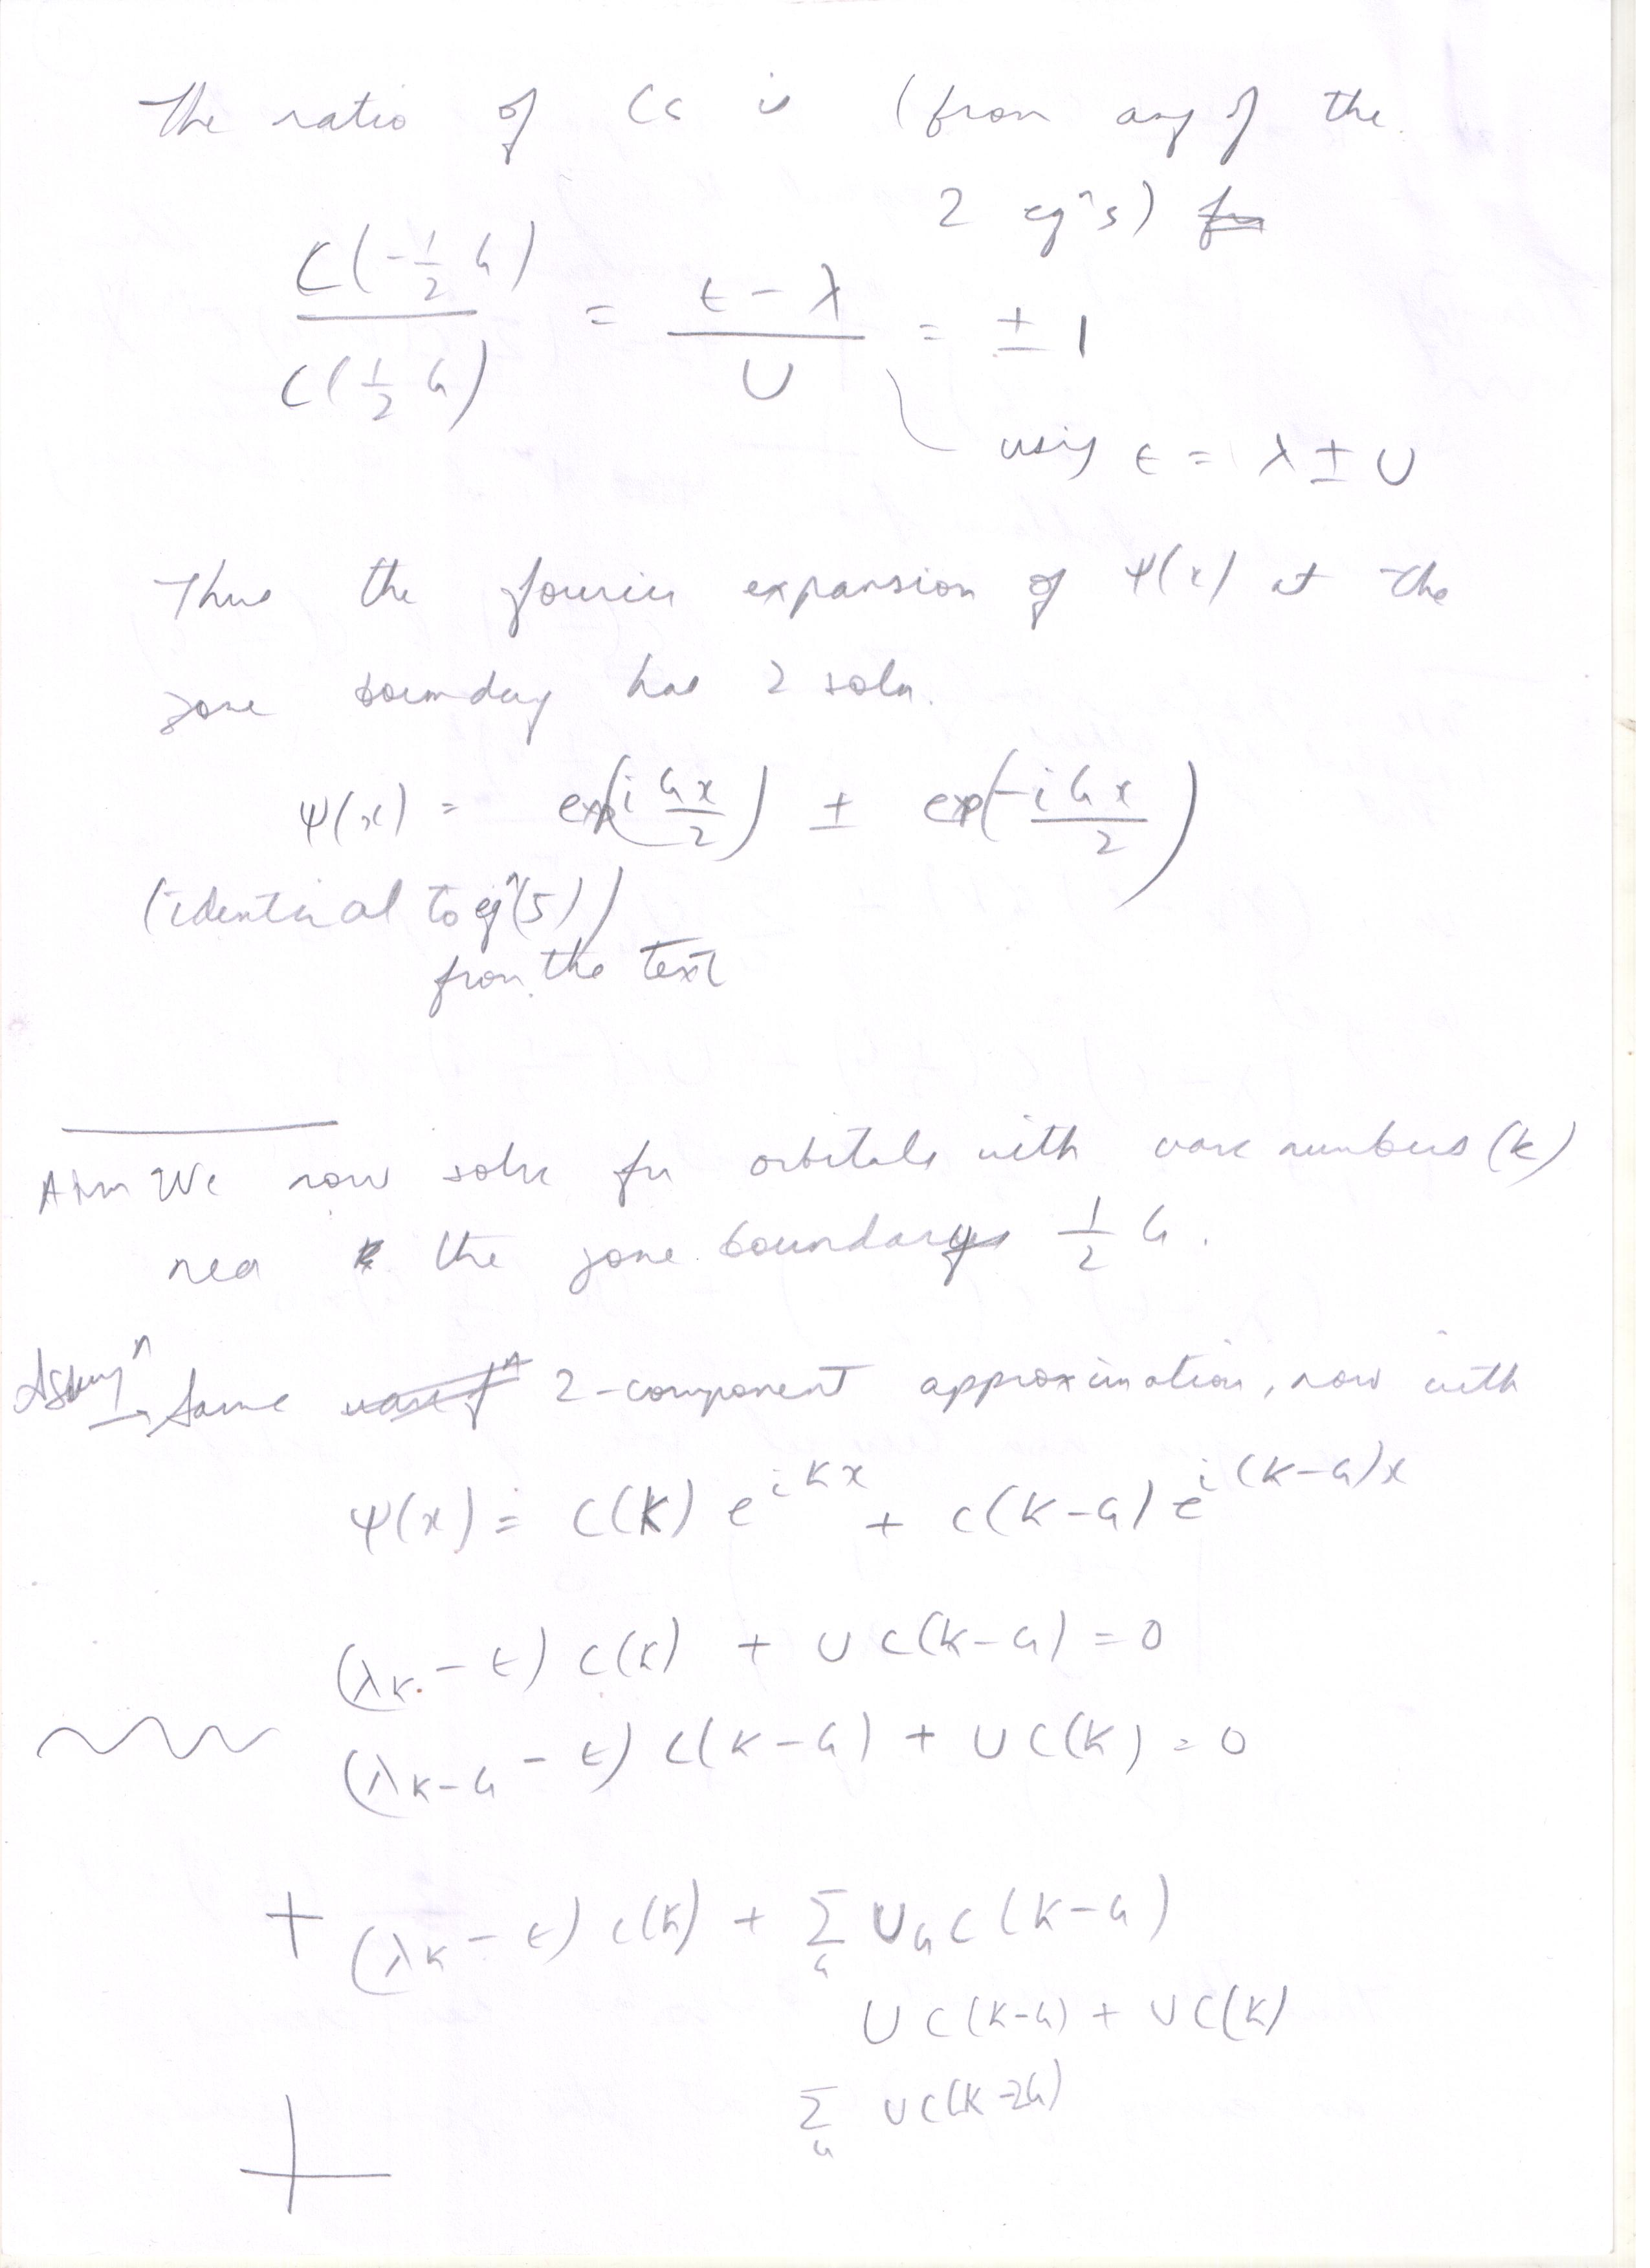 The ratio of Cs is (from any of the
2 eqⁿs) for
C(-½ G) / C(½ G) = (ε - λ) / U = ± 1
using ε = λ ± U
Thus the fourier expansion of Ψ(x) at the
zone boundary has 2 soln.
Ψ(x) = exp(i Gx/2) ± exp(-i Gx/2)
(identical to eqⁿ(5))
from the text
Aim We now solve for orbitals with wave numbers (k)
near the zone boundary ½ G.
Same 2-component approximation, now with
Ψ(x) = C(K) e^{iKx} + C(K-G) e^{i(K-G)x}
(λ_K - ε) C(K) + U C(K-G) = 0
(λ_{K-G} - ε) C(K-G) + U C(K) = 0
+ (λ_K - ε) C(K) + Σ_G U_G C(K-G)
U C(K-G) + U C(K)
Σ_G U C(K-2G)